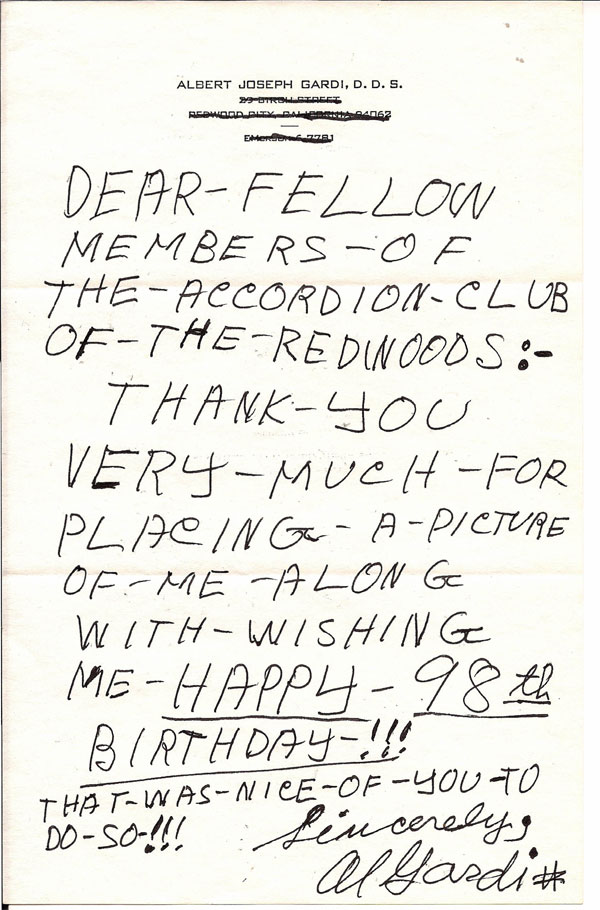 ALBERT JOSEPH GARDI, D. D. S.
REDWOOD CITY, CALIFORNIA 94062
EMERSON 6-7781
DEAR-FELLOW
MEMBERS-OF
THE-ACCORDION-CLUB
OF-THE-REDWOODS:-
THANK-YOU
VERY-MUCH-FOR
PLACING-A-PICTURE
OF-ME-ALONG
WITH-WISHING
ME-HAPPY-98th
BIRTHDAY-!!!
THAT-WAS-NICE-OF-YOU-TO
DO-SO-!!!
Sincerely,
Al Gardi #